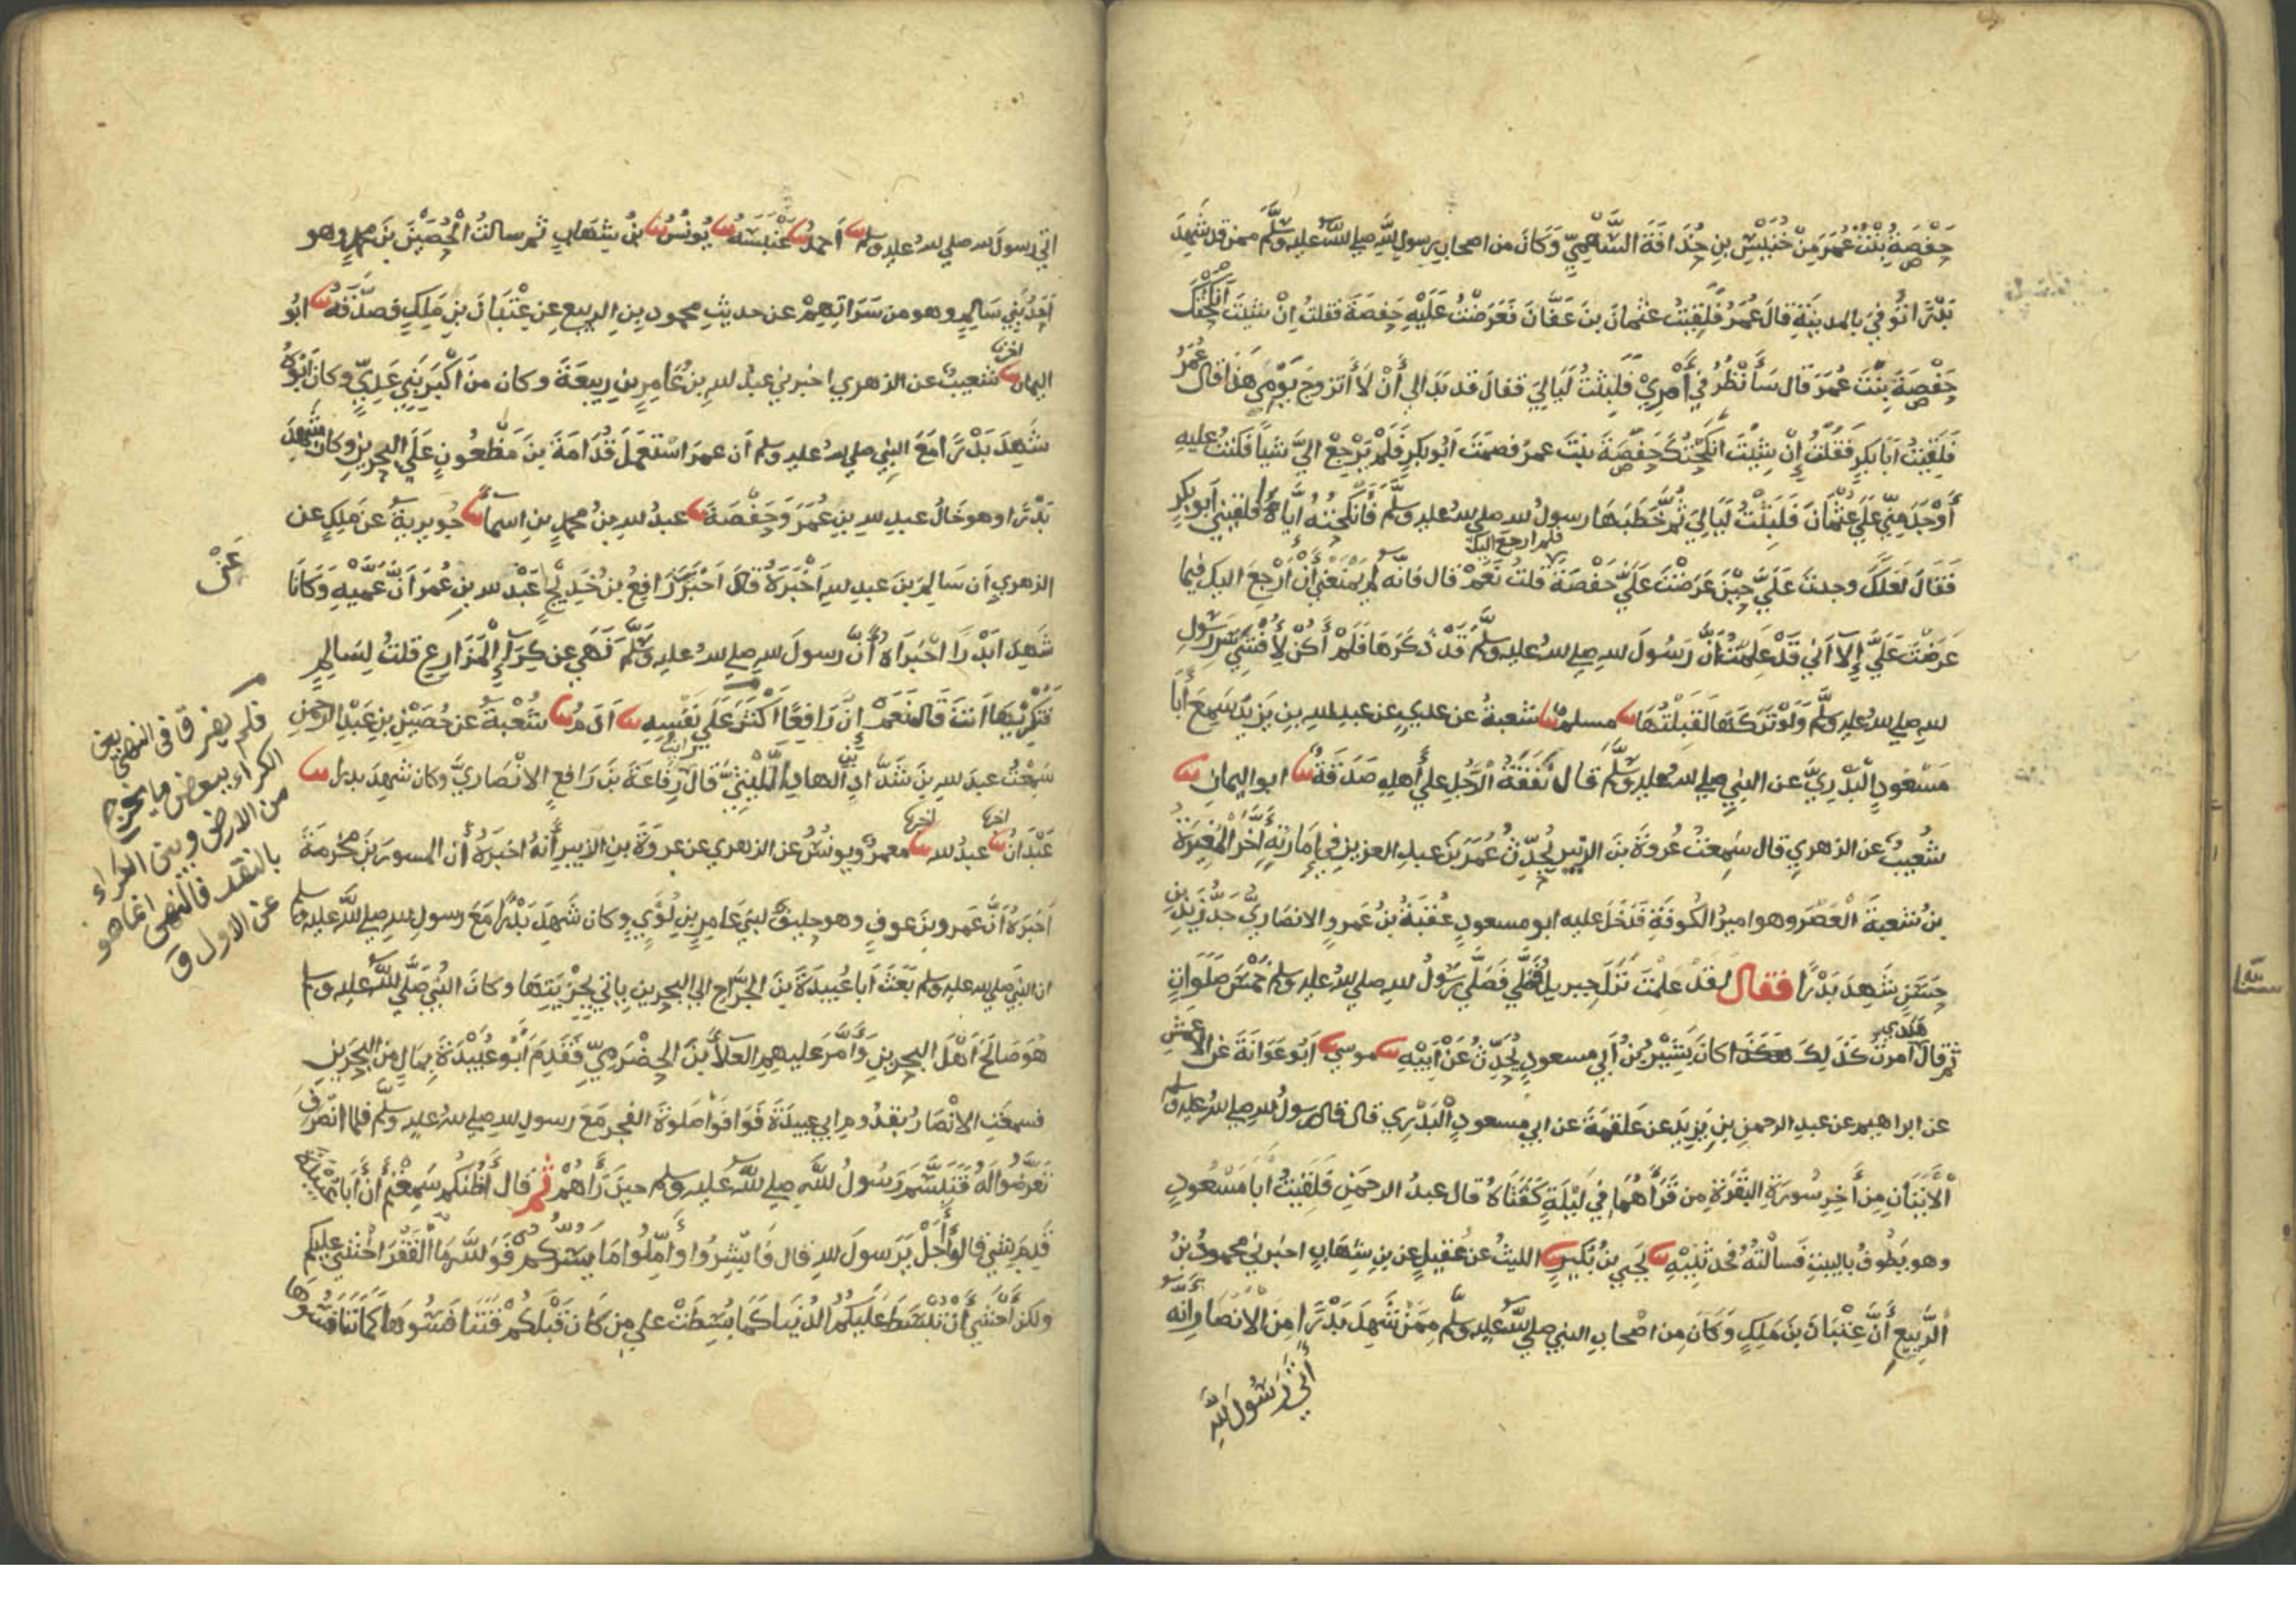 حَفْصَةُ بِنْتُ عُمَرَ مِنْ خُنَيْسِ بنِ حُذَافَةَ السَّهْمِيِّ وَكَانَ من اصحابِ رسولِ اللّٰهِ صلي للهُ عليهِ وسلَّم ممن قد شَهِدَ
بَدْرًا تُوُفِّيَ بالمدينَةِ قالَ عُمَرُ فَلَقِيتُ عثمانَ بنَ عَفَّانَ فَعَرَضْتُ عَلَيْهِ حَفصَةَ فقلتُ اِنْ شِئتَ اَنْكَحْتُكَ
حَفْصَةَ بِنْتَ عُمَرَ قال سَأَنْظُرُ في أَمْرِيْ فَلَبِثْتُ لَيَالِيَ فقالَ قد بَدَا لي أَنْ لَا أَتزوجَ يَوْمِي هَذا قال عُمَرُ
فَلَقِيْتُ اَبَا بكرٍ فَقُلْتُ إِنْ شِئْتَ اَنْكَحْتُكَ حَفْصَةَ بنْتَ عمرَ فصمَتَ اَبُو بكرٍ فَلَمْ يَرْجِعْ اليَّ شيأً فكنتُ عليهِ
أَوْجَدَ مِنِّي عَلَي عُثْمَانَ فَلَبِثْتُ لَيَالِيَ ثُمَّ خَطَبَهَا رسولُ للهِ صلي للهُ عليهِ وسلَّم فَأَنْكَحْتُهُ اِيَّاهُ فلقيني اَبو بكرٍ
فَقَالَ لَعَلَّكَ وجدتَ عَلَيَّ حِيْنَ عَرَضْتَ عَلَيَّ حَفْصَةَ فلم ارجع اليكَ قلتُ نَعَمْ قال فانّه لم يَمْنَعْنِي أَنْ أَرْجِعَ اليكَ فيما
عَرَضْتَ عَلَيَّ إلا اَني قَدْ عَلِمْتُ أَنَّ رَسُولَ للهِ صلي للهُ عليهِ وسلَّم قَدْ ذَكَرَهَا فَلَمْ أَكُنْ لِأُفْشِيَ سِرَّ رَسُولِ
للهِ صلي للهُ عليهِ وسلَّم وَلَوْ تَرَكَهَا لَقَبِلْتُهَا ثنا مسلمٌ ثنا شعبةُ عن عديٍ عن عبدِ للهِ بنِ يَزِيدَ سَمِعَ أَبَا
مَسْعُودٍ الْبَدْرِيَّ عن النبيِ صلي للهُ عليهِ وسلَّم قال نَفَقَةُ الرَّجُلِ علي أَهلِهِ صَدَقَةٌ ثنا ابو اليمانِ ثنا
شُعيبٌ عن الزهريِ قال سَمِعْتُ عُروَةَ بنَ الزبيرِ يُحَدِّثُ عُمَرَ بنَ عبدِ العزيزِ في إِمَارَتِهِ أَخَّرَ الْمُغِيرَةُ
بنُ شعبةَ الْعَصْرَ وهو اميرُ الكُوفَةِ فَدَخَلَ عليه ابو مسعودٍ عُقبَةُ بنُ عَمرٍو الانصَارِيُّ جَدُّ زَيدِ بنِ
حَسَنٍ شَهِدَ بَدْرًا فقال لقد علمْتَ نَزَلَ جبريلُ فَصَلَّي فَصَلَّي رَسُولُ للهِ صلي للهُ عليهِ وسلم خَمْسَ صَلَوَاتٍ
ثم قال هكذي أُمرتُ كَذَلِكَ كانَ بَشِيْرُ بنُ أَبي مسعودٍ يُحَدِّثُ عَنْ اَبِيْهِ ثنا موسي ثنا اَبُو عَوَانَةَ عن الاعمشِ
عن ابراهيم عن عبدِ الرحمنِ بنِ يَزِيدَ عن عَلقمَةَ عن ابي مسعودٍ الْبَدْرِي قال قال رسولُ للهِ صلي للهُ عليهِ وسلم
الْآيَتَانِ مِن أَخِرِ سُورَةِ البَقَرَةِ مِن قَرَأَهُمَا في لَيْلَةٍ كَفَتَاهُ قال عبدُ الرحمنِ فَلَقِيْتُ أَبَا مَسْعُودٍ
وهو يَطُوفُ بالبيتِ فَسَأَلْتُهُ فَحَدَّثَنِيْهِ ثنا يَحيي بنُ بُكيرٍ ثنا الليثُ عن عُقيلٍ عن بنِ شِهَابٍ اخبرني محمودُ بنُ
الرَّبِيعِ أَنَّ عِتْبَانَ بنَ مَلِكٍ وَكَانَ مِن اصْحابِ النبي صلي للهُ عليهِ وسلَّم مِمَّنْ شَهِدَ بَدْرًا مِنَ الانْصَارِ أَنَّهُ
أَتَي رَسُولَ للهِ
اتي رسولَ للهِ صلي للهُ عليهِ وسلم ثنا اَحمدُ ثنا عَنْبَسَةُ ثنا يُونُسُ ثنا بنُ شِهَابٍ ثم سالتُ الْحُصَيْنَ بنَ محمدٍ وهو
اَحَدُ بَنِي سَالِمٍ وهو من سَرَاتِهِمْ عن حديثِ محمودِ بنِ الربيعِ عن عِتْبَانَ بنِ مَلِكٍ فصدَّقَهُ ثنا ابُو
اليمانِ اخبرنا شعيبٌ عن الزهري اخبرني عبدُ للهِ بنُ عَامِرِ بنِ رَبِيعَةَ وكان من اَكْبَرِ بَنِي عَدِيٍّ وكان اَبُوهُ
شَهِدَ بَدْرًا مَعَ النبيِ صلي للهُ عليهِ وسلم اَن عمرَ اسْتَعْمَلَ قُدَامَةَ بنَ مَظْعُونٍ عَلَي البحرينِ وكان شَهِدَ
بَدْرًا وهو خَالُ عبدِ للهِ بنِ عُمَرَ وَحَفْصَةَ ثنا عبدُ للهِ بنُ محمدِ بنِ اسمآءَ ثنا جُويريةُ عن مَلِكٍ عن
الزهريِ اَن سَالِمَ بنَ عبدِ للهِ اَخْبَرَهُ قال اَخْبَرَ رَافِعُ بنُ خَدِيْجٍ عَبْدَ للهِ بنِ عُمَرَ اَنَّ عَمَّيْهِ وَكَانَا
عَنْ
شَهِدَا بَدْرًا اخْبَرَاهُ أَنَّ رسولَ للهِ صلي للهُ عليهِ وسلَّم نَهَي عن كِرَآءِ الْمَزَارِعِ قلتُ لِسَالِمٍ
فَتُكْرِيْهَا اَنتَ قَالَ نَعَمْ إِنَّ رَافِعًا اَكْثَرَ عَلَي نَفْسِهِ ثنا اَدَمُ ثنا شُعْبَةُ عن حُصَيْنِ بنِ عَبْدِ الرحمنِ
سَمِعْتُ عبدَ للهِ بنَ شَدَّادِ بْنِ الهادِ اللَّيْثِيَّ قال رايتُ رِفاعَةَ بنَ رَافعٍ الانْصَارِيَّ وكان شَهِدَ بدرا ثنا
عَبْدَانُ اخبرنا عبدُ للهِ اخبرنا معمرٌ ويونُسُ عن الزهري عن عروَةَ بنِ الزبيرِ أَنَّهُ اخبَرَهُ أَن المسورَ بنَ مَخْرَمَةَ
اَخبَرَهُ اَنَّ عَمرَو بنَ عوفٍ وهو حليفٌ لبني عَامِرِ بنِ لُؤَيٍ وكان شَهِدَ بَدْرًا مَعَ رسولِ للهِ صلي للهُ عليهِ وسلم
ان النبيَ صلي للهُ عليهِ وسلم بَعَثَ اَبا عُبيدَةَ بنَ الجرَّاحِ الي البحرينِ ياتي بجِزْيَتِهَا وكانَ النبيُ صَلَّي للهُ عليهِ وسلم
هُوَ صَالَحَ اَهْلَ البحرينِ وَأَمَّرَ عليهِمِ العَلآءَ بنَ الحضْرَمِيِّ فَقَدِمَ اَبُو عُبَيْدَةَ بمَالٍ مِن البحرينِ
فسمعَتِ الانْصَارُ بقدُومِ ابي عبيدَةَ فَوَافَوْا صَلوةَ الفجرِ مَعَ رسولِ للهِ صلي للهُ عليهِ وسلَّم فلما انصَرَفَ
تَعَرَّضُوا لَهُ فَتَبَسَّمَ رَسُولُ للهِ صلي للهُ عليهِ وسلم حينَ رَأَهُمْ ثم قال أَظُنُّكُم سَمِعْتُم أَن أَبَا عُبَيْدَةَ
قَدِمَ بِشيٍ قالُوا أَجَلْ يَرَسولَ للهِ قال فَأَبْشِرُوا وَأَمِّلُوا مَا يَسُرُّكُمْ فَوَ للهِ مَا الْفَقْرَ اخْشَي عليكم
ولكن اَخْشَي أَنْ تُبْسَطَ عَلَيكُمُ الدُنيَا كَمَا بُسِطَتْ علي مِن كَانَ قَبْلَكُمْ فَتَنَافَسُوهَا كَمَا تَنَافَسُوهَا
فلم يفرقا في النهي بين
الكراء ببعض ما يخرج
من الارض وبين الكراء
بالنقد فالنهى انما هو
عن الاول ق